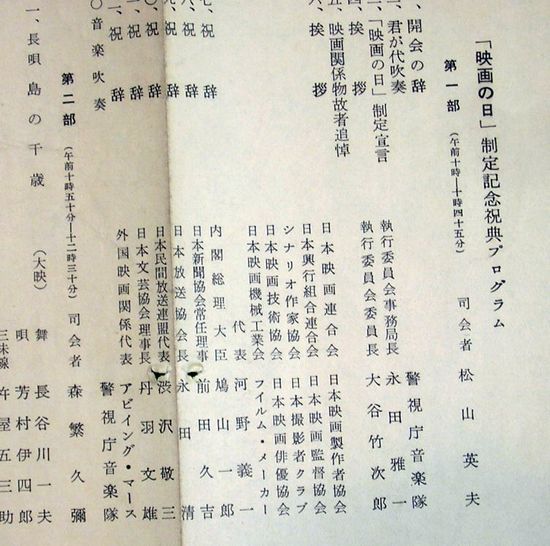 「映画の日」制定記念祝典プログラム
第一部 (午前十時―十時四十五分) 司会者 松山英夫
、開会の辞 執行委員会事務局長 永田雅一
、君が代吹奏 警視庁音楽隊
、「映画の日」制定宣言 執行委員会委員長 大谷竹次郎
四、挨拶
五、映画関係物故者追悼
六、挨拶
日本映画連合会 日本映画製作者協会
日本興行組合連合会 日本映画監督協会
シナリオ作家協会 日本撮影者クラブ
日本映画技術協会 日本映画俳優協会
日本映画機械工業会 フイルム・メーカー
代表 河野義一
七、祝辞 内閣総理大臣 鳩山一郎
、祝辞 日本新聞協会常任理事 前田久吉
、祝辞 日本放送協会長 永田清
〇、祝辞 日本民間放送連盟代表 渋沢敬三
、祝辞 日本文芸協会理事長 丹羽文雄
、祝辞 外国映画関係代表 アビイング・マース
〇音楽吹奏 警視庁音楽隊
第二部 (午前十時五十分―十二時三十分) 司会者 森繁久彌
一、長唄島の千歳 (大映) 舞 長谷川一夫
唄 芳村伊四郎
三味線 杵屋五三助